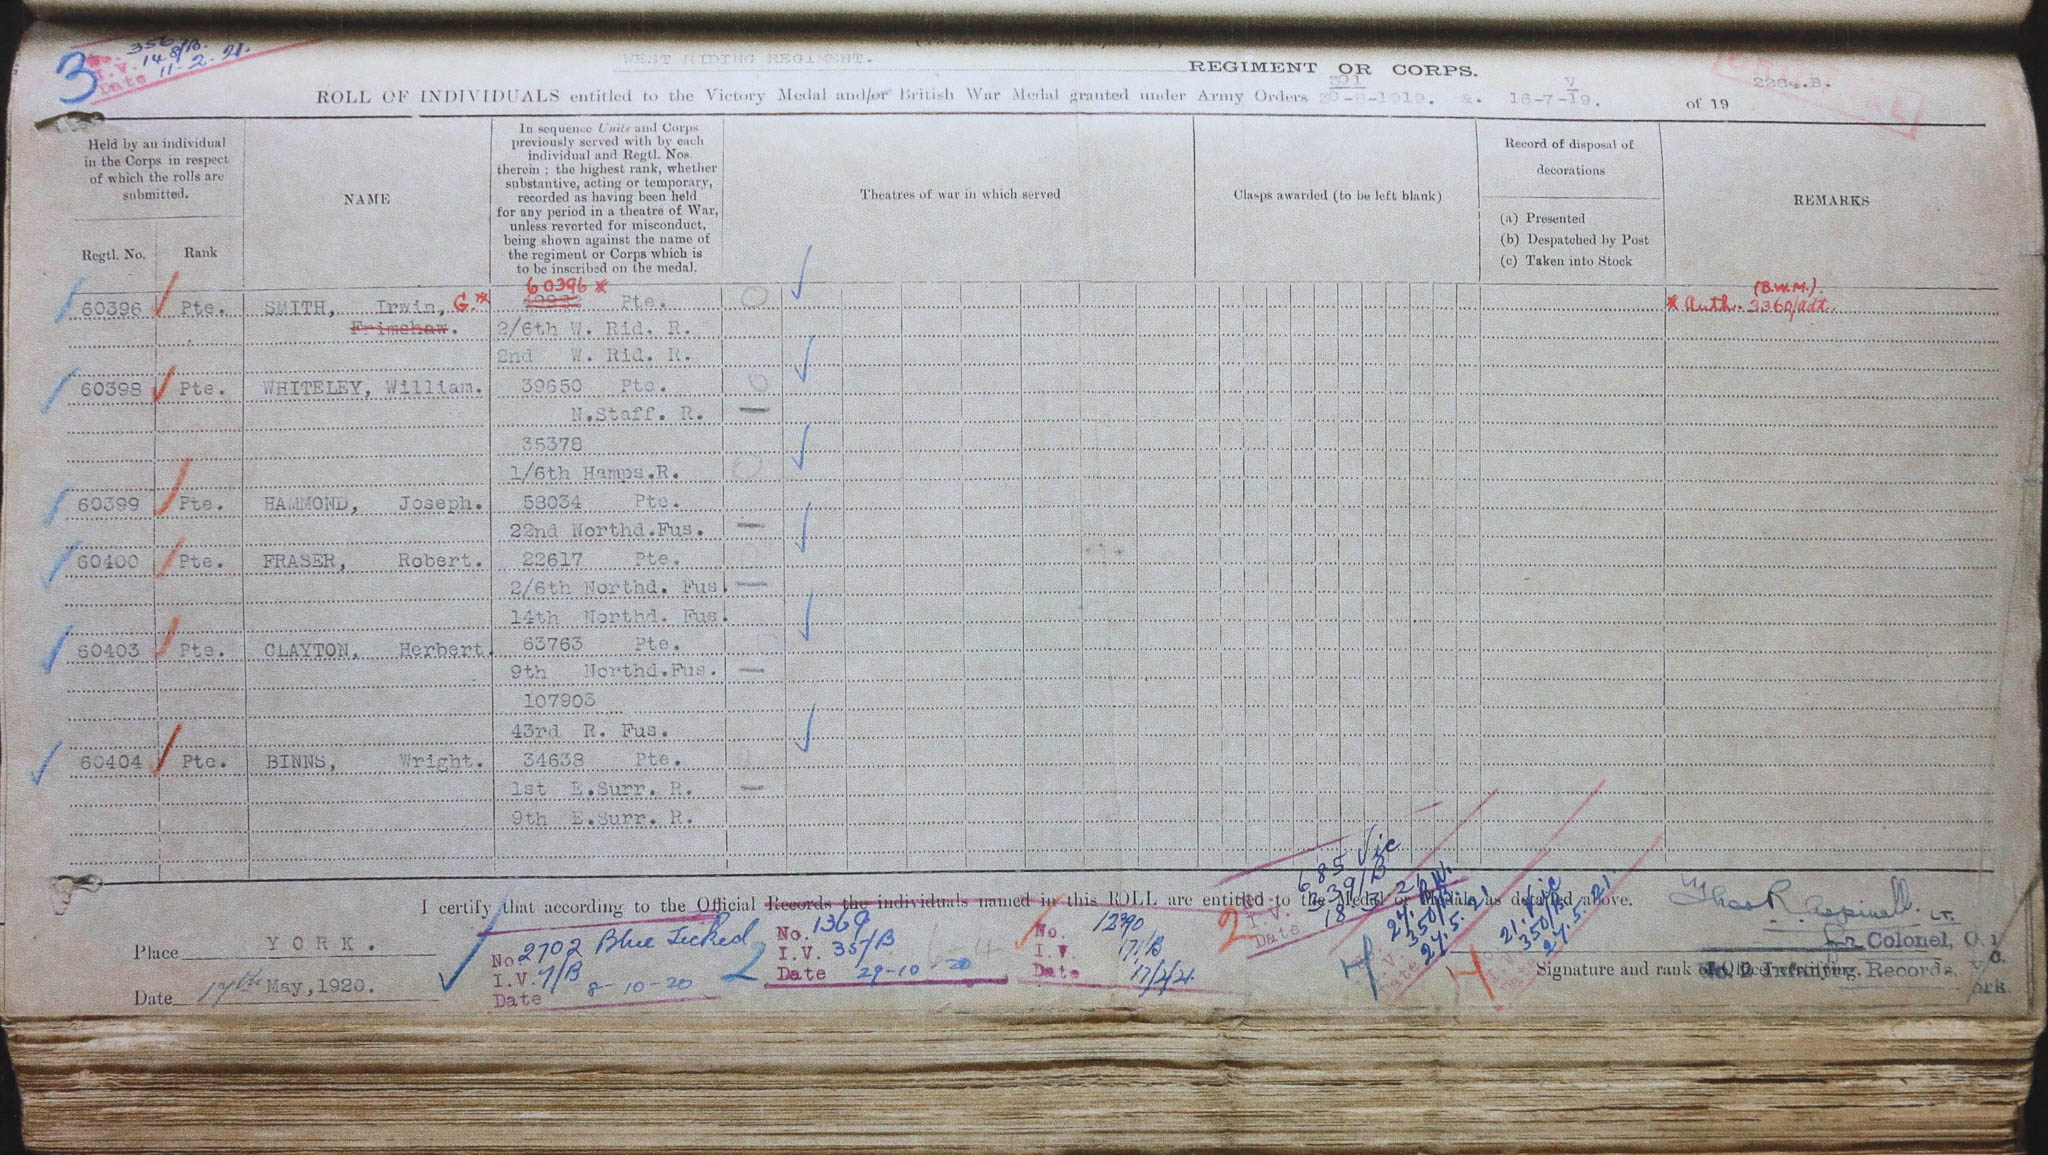 3
No. 356/B.
I.V. 148/B.
Date 11-2-21.
WEST RIDING REGIMENT. REGIMENT OR CORPS.
2284.B.
ROLL OF INDIVIDUALS entitled to the Victory Medal and/or British War Medal granted under Army Orders 301 &. V of 19
16-7-19.
Held by an individual
in the Corps in respect
of which the rolls are
submitted.
Regtl. No. Rank
NAME
In sequence Units and Corps
previously served with by each
individual and Regtl. Nos.
therein ; the highest rank, whether
substantive, acting or temporary,
recorded as having been held
for any period in a theatre of War,
unless reverted for misconduct,
being shown against the name of
the regiment or Corps which is
to be inscribed on the medal.
Theatres of war in which served
Clasps awarded (to be left blank)
Record of disposal of
decorations
(a) Presented
(b) Despatched by Post
(c) Taken into Stock
REMARKS
60396 *
60396 Pte. SMITH, Irwin, G.* Pte.
(B.W.M.).
* Auth. 3360/adt.
Frimshaw. 2/6th W. Rid. R.
2nd W. Rid. R.
60398 Pte. WHITELEY, William. 39650 Pte.
N.Staff. R.
35378
1/6th Hamps.R.
60399 Pte. HAMMOND, Joseph. 58034 Pte.
22nd Northd.Fus.
60400 Pte. FRASER, Robert. 22617 Pte.
2/6th Northd. Fus.
14th Northd. Fus.
60403 Pte. CLAYTON, Herbert. 63763 Pte.
9th Northd.Fus.
107903
43rd R. Fus.
60404 Pte. BINNS, Wright. 34638 Pte.
1st E.Surr. R.
9th E.Surr. R.
I certify that according to the Official Records the individuals named in this ROLL are entitled to the Medal or Medals as detailed above.
Place YORK.
Date 17th May, 1920.
No 2702 Blue Ticked
I.V. 7/B
Date 8-10-20
2
No. 1369
I.V. 357/B
Date 29-10-20
No. 1290
I.V. 17/B
Date 17/2/21
2
685 Vic
I.V. 539/B
Date
350/B
24.5.21
21. Vic
350/B
24.5.21.
Lt.
for Colonel, O. i/c.
Signature and rank of Officer certifying.
Infantry Records, York.